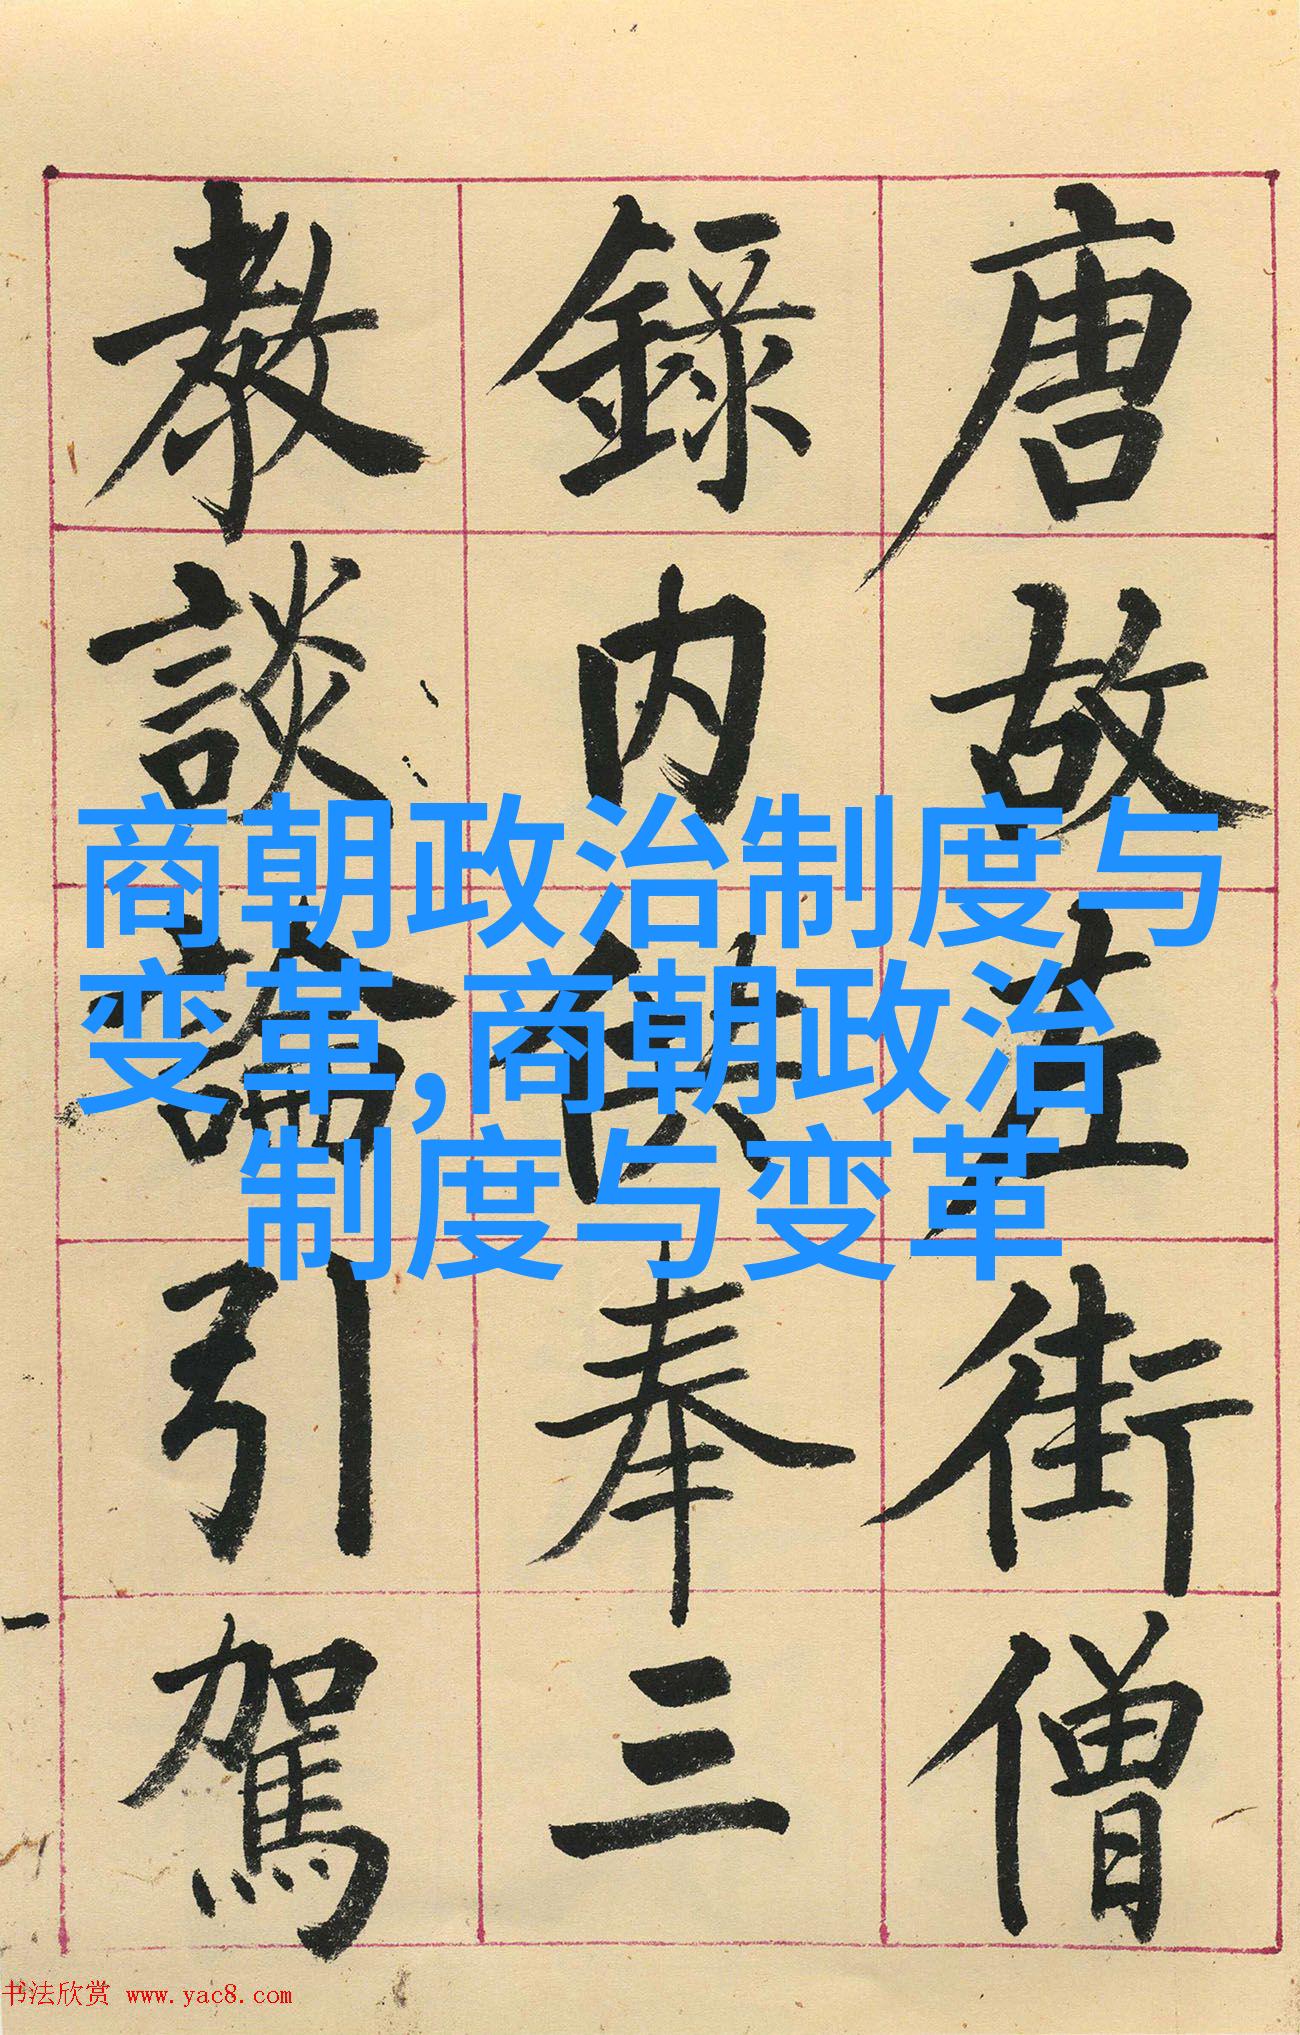 唐故左街僧
録内供奉三
教談論引駕
商朝政治制度与
变革,商朝政治
制度与变革
书法欣赏 www.yac8.com